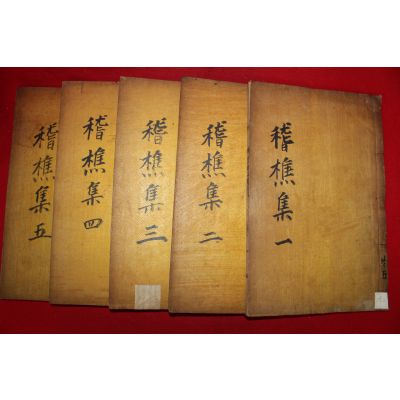 稽樵集 一
稽樵集 二
稽樵集 三
稽樵集 四
稽樵集 五
共五